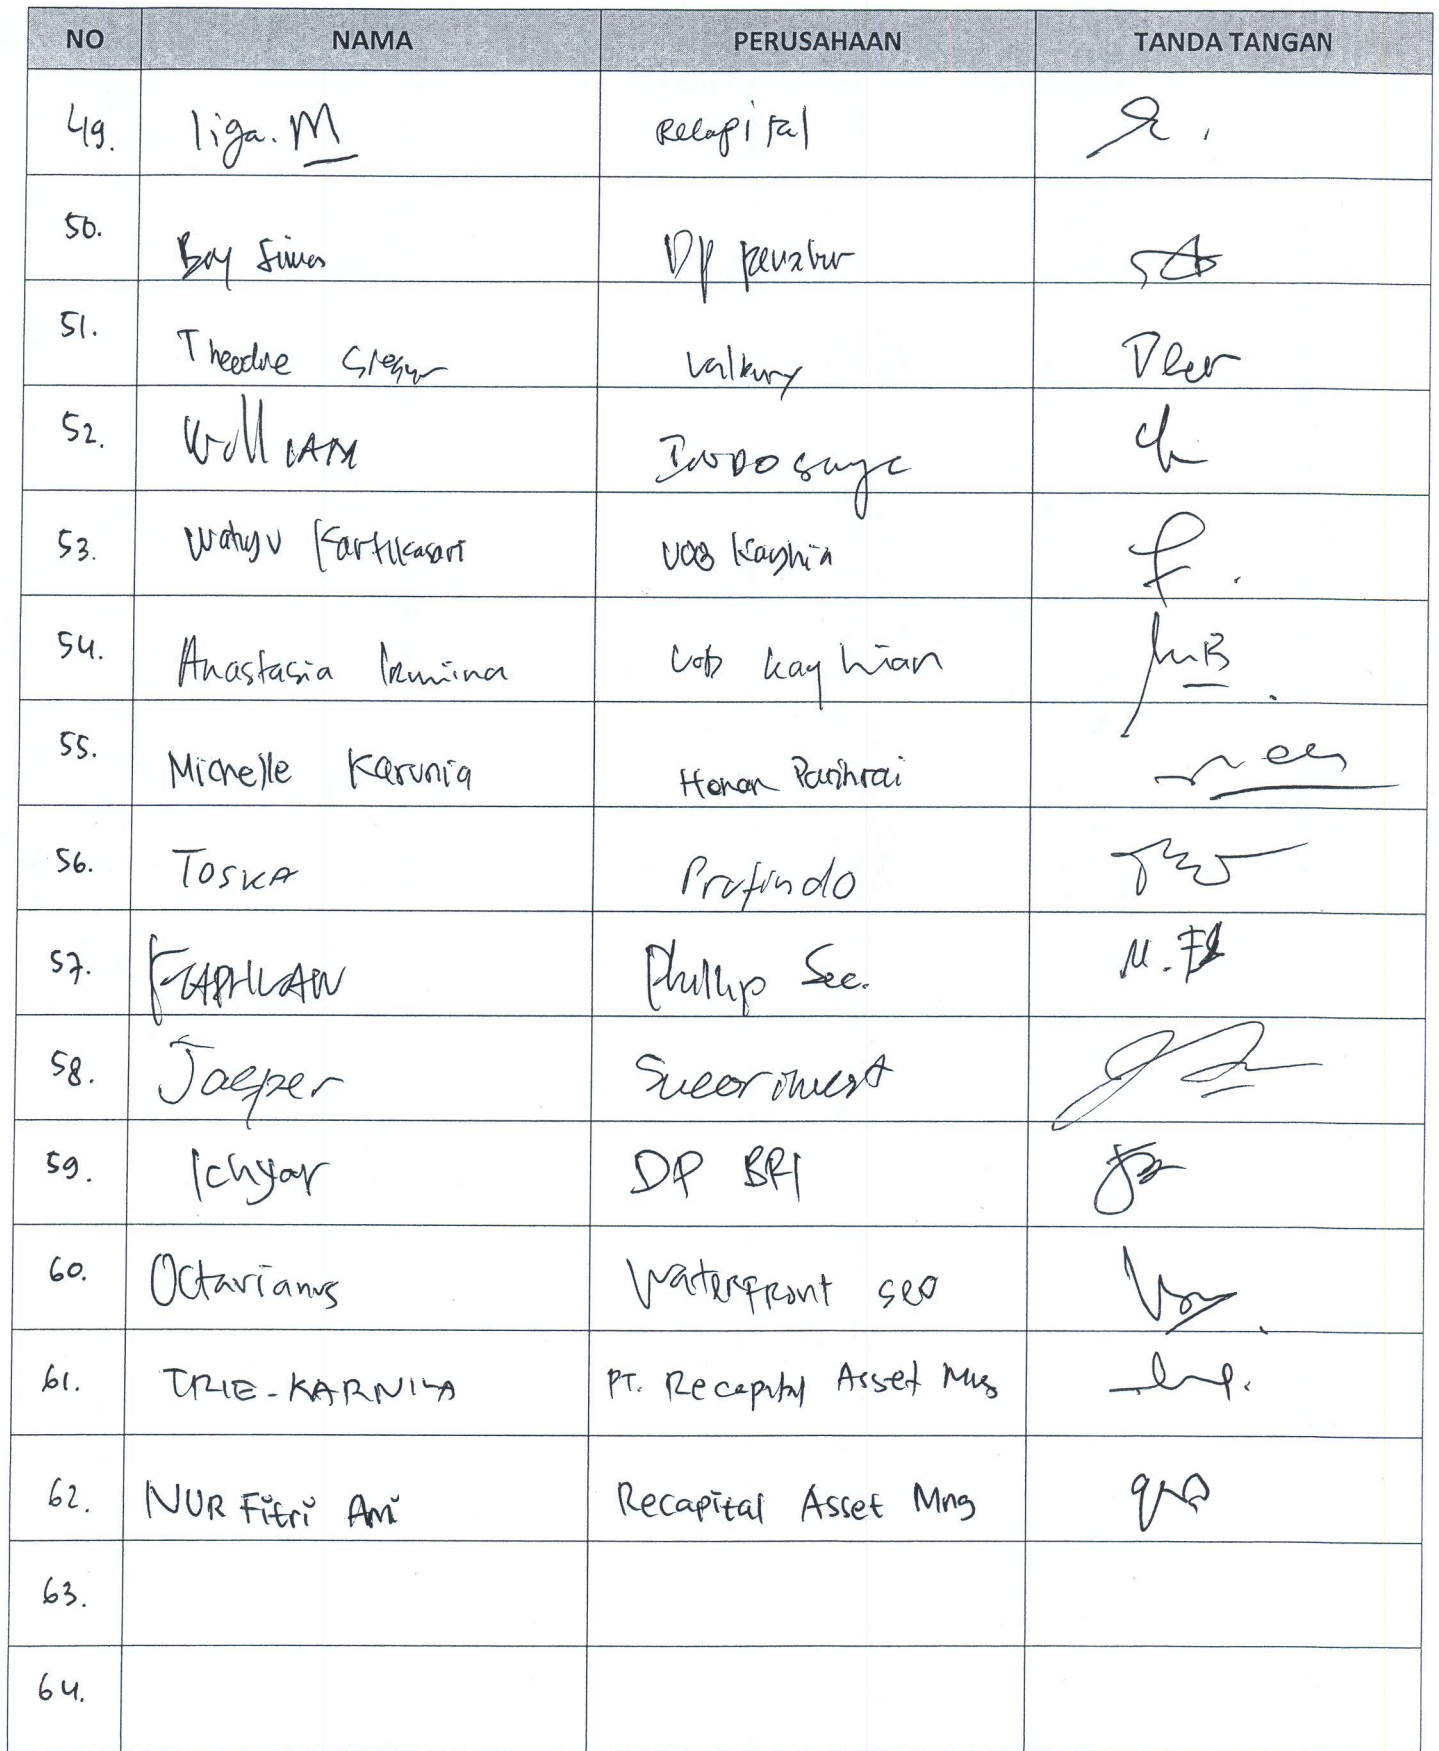 NO NAMA PERUSAHAAN TANDA TANGAN
49. liga. M Recapital
50. Boy DP
51. Theodore Valbury
52. William INDOSURYA
53. Wahyu Kartikasari UOB Kayhian
54. Anastasia Irmina Uob kay hian
55. Michelle Karunia Honan
56. TOSKA Profindo
57. Phillip Sec.
58. Jasper Sucorinvest
59. Ichyar DP BRI
60. Octavianus Waterfront sec
61. TRIE-KARNILA PT. Recapital Asset Mng
62. NUR Fitri Ani Recapital Asset Mng
63.
64.